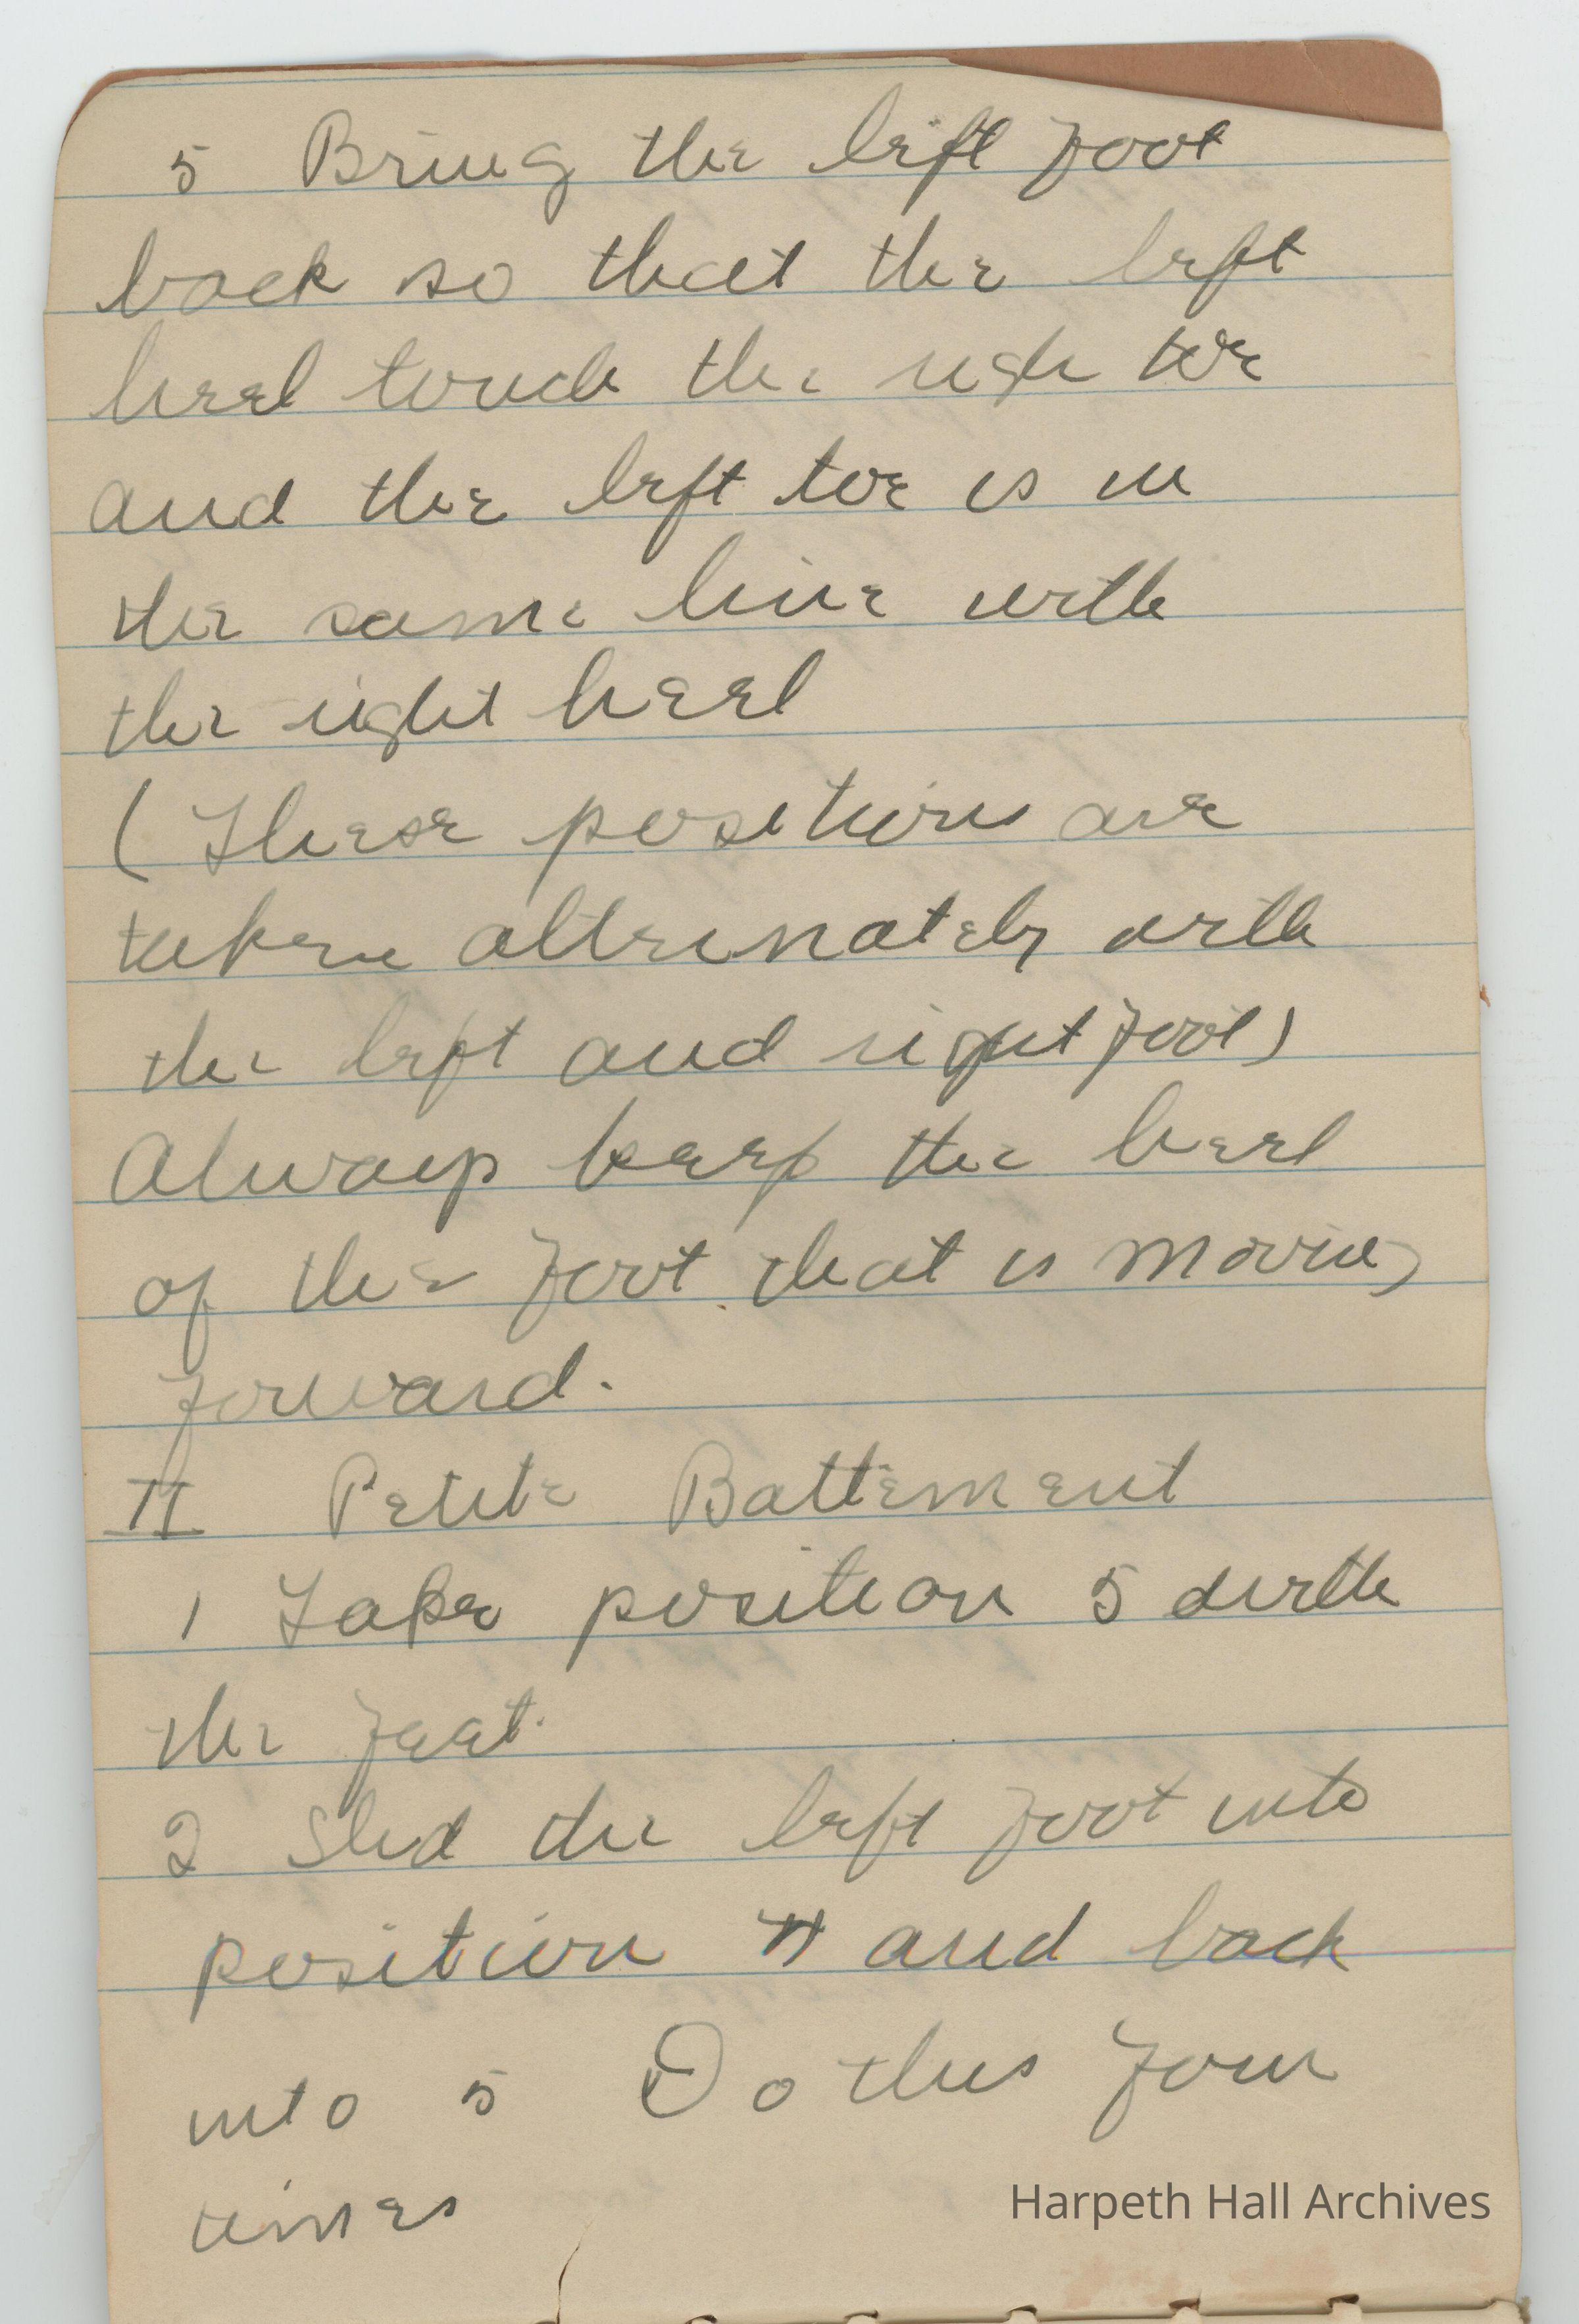 5 Bring the left foot
back so that the left
heel touch the righ toe
and the left toe is in
the same line with
the right heel
(These positions are
taken alternately with
the left and right foot)
Always keep the heel
of the foot that is moving
forward.
II Petite Battement
1 Take position 5 with
the feet.
2 Slid the left foot into
position and back
into 5 Do this four
times
Harpeth Hall Archives